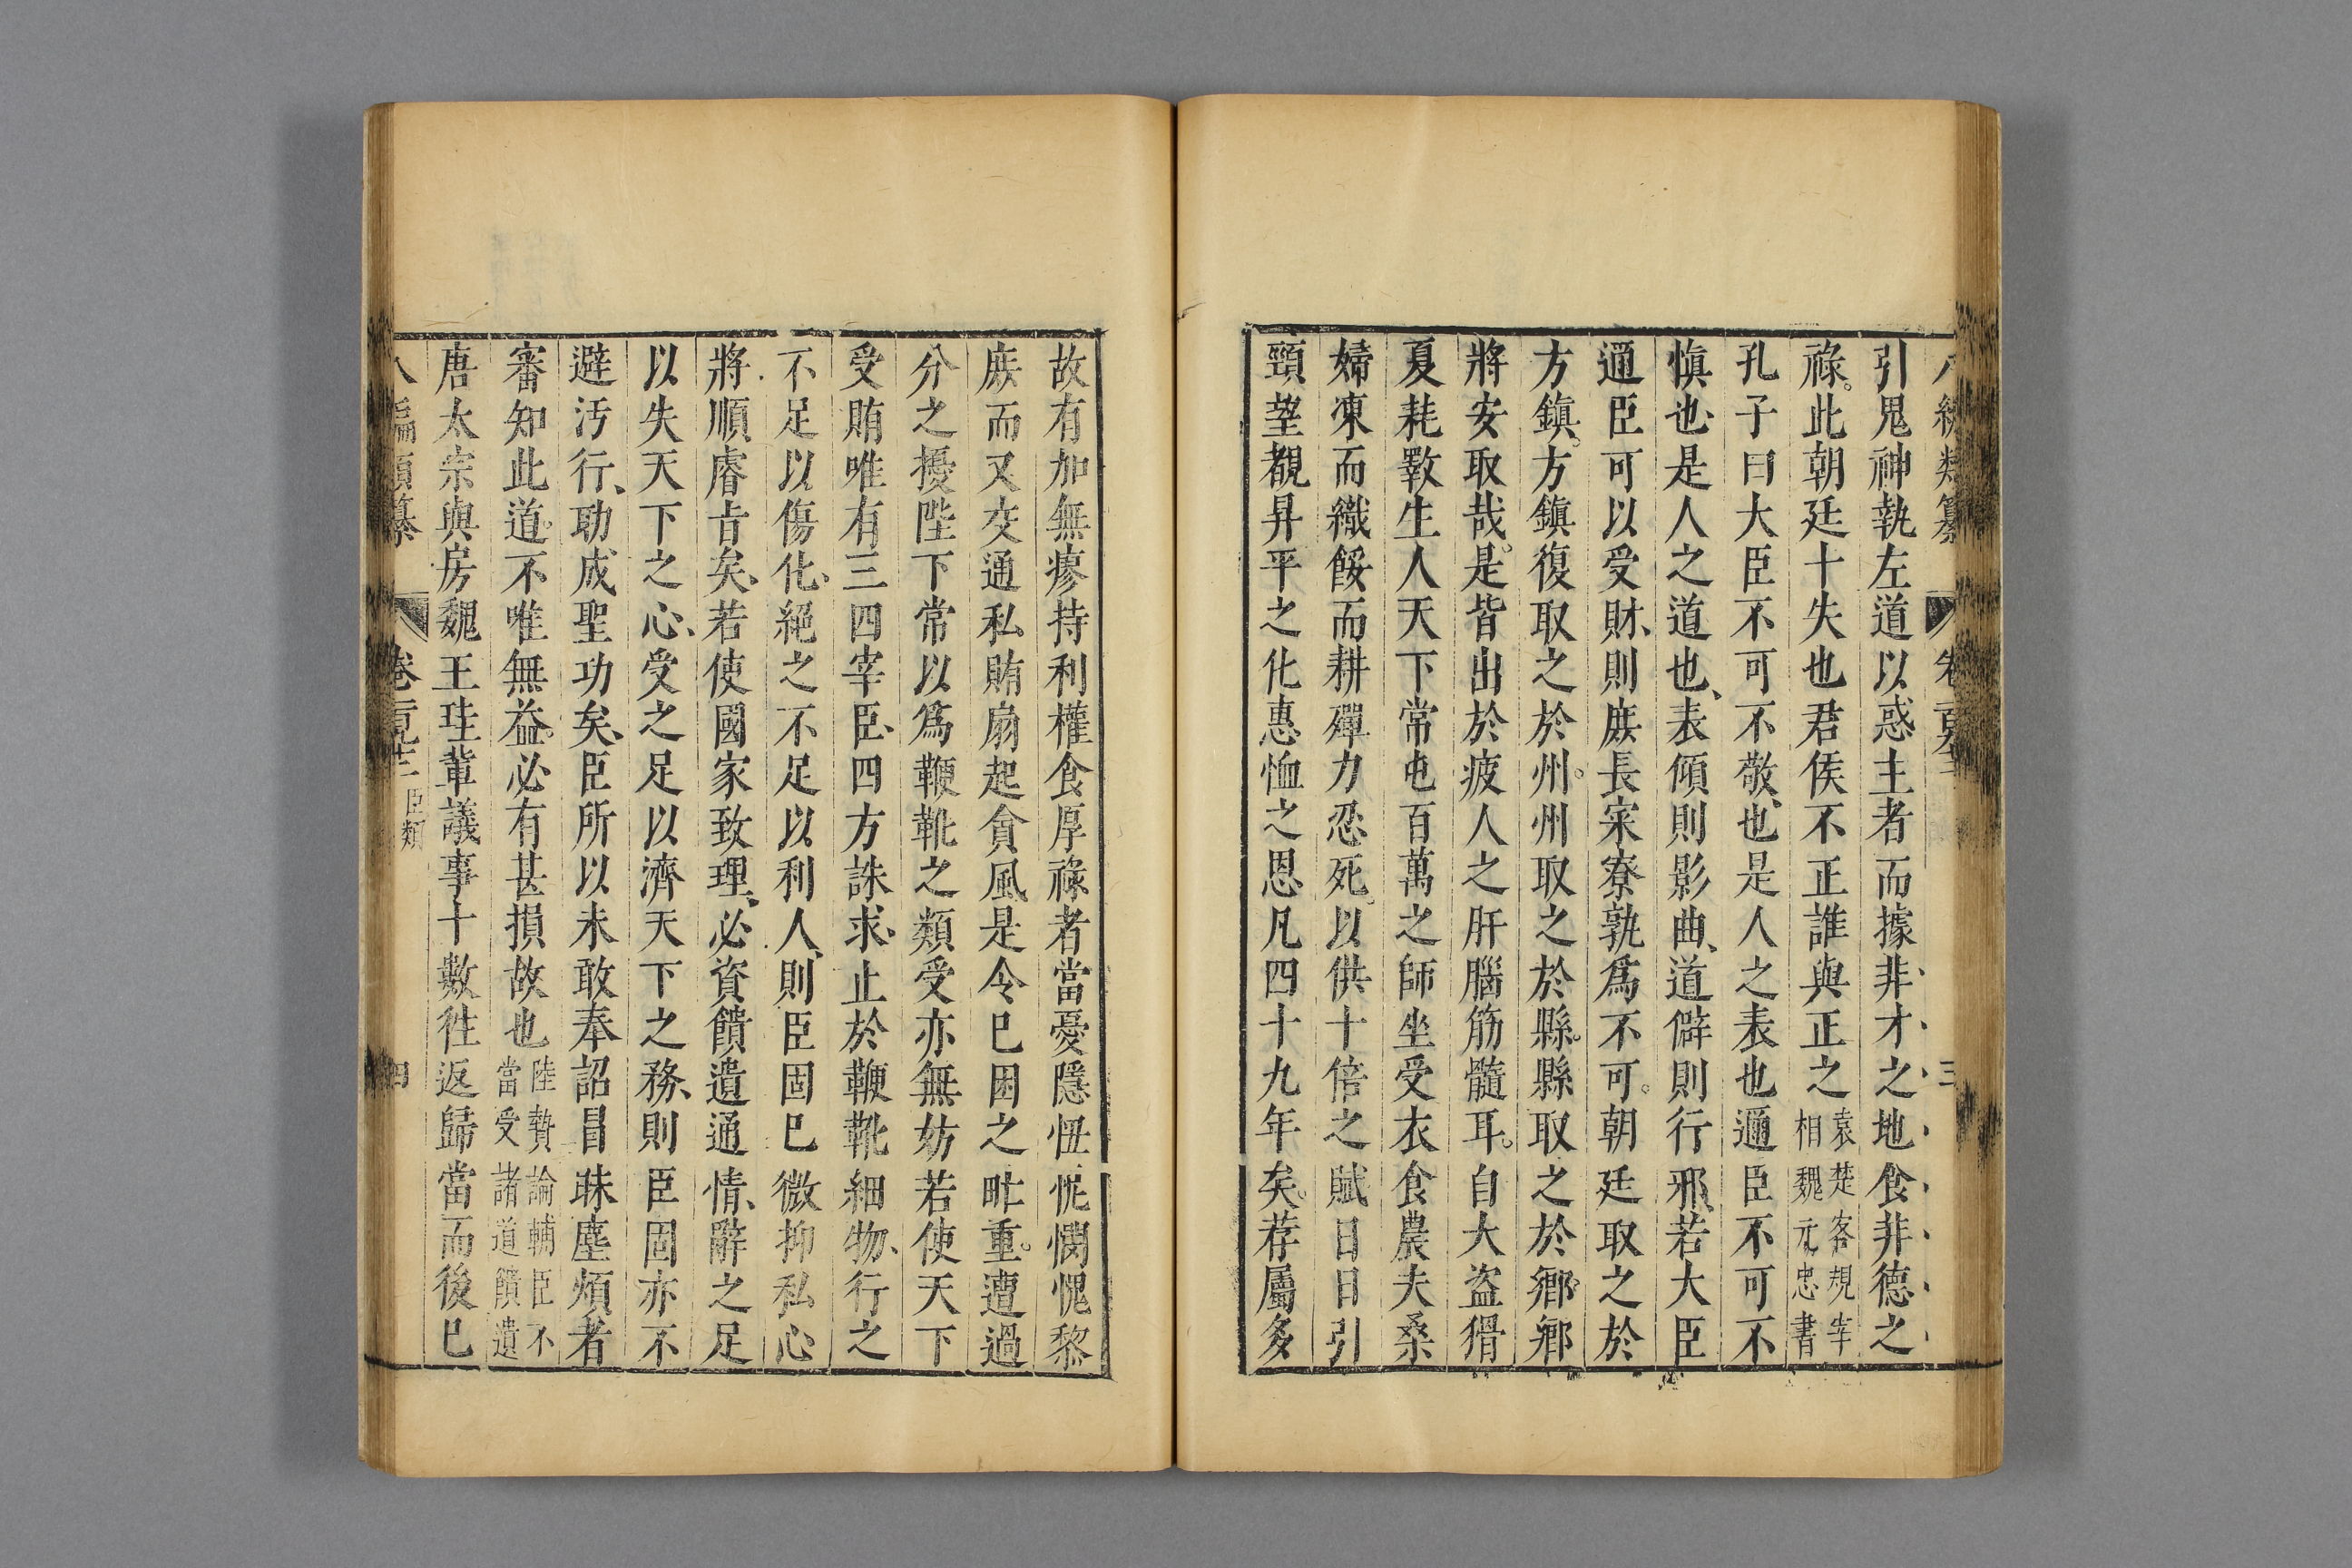 引鬼神執左道以惑主者而據非才之地食非德之
祿此朝廷十失也君侯不正誰與正之袁楚客規宰相魏元忠書
孔子曰大臣不可不敬也是人之表也邇臣不可不
慎也是人之道也表傾則影曲道僻則行邪若大臣
通臣可以受財則庶長寀寮孰爲不可朝廷取之於
方鎮方鎮復取之於州州取之於縣縣取之於鄉鄉
將安取哉是皆出於疲人之肝腦筋髓耳自大盜猾
夏耗斁生人天下常屯百萬之師坐受衣食農夫桑
婦凍而織餒而耕殫力忍死以供十倍之賦日日引
頸望覩昇平之化惠恤之恩凡四十九年矣荐屬多
故有加無瘳持利權食厚祿者當憂隱忸怩憫愧黎
庶而又交通私賄扇起貪風是令已困之甿重遭過
分之擾陛下常以爲鞭靴之類受亦無妨若使天下
受賄唯有三四宰臣四方誅求止於鞭靴細物行之
不足以傷化絕之不足以利人則臣固已微抑私心
將順睿旨矣若使國家致理必資饋遺通情辭之足
以失天下之心受之足以濟天下之務則臣固亦不
避汚行助成聖功矣臣所以未敢奉詔冒昧塵煩者
審知此道不唯無益必有甚損故也陸贄論輔臣不當受諸道饋遺
唐太宗與房魏王珪輩議事十數徃返歸當而後已
八編類纂 卷 臣類 四